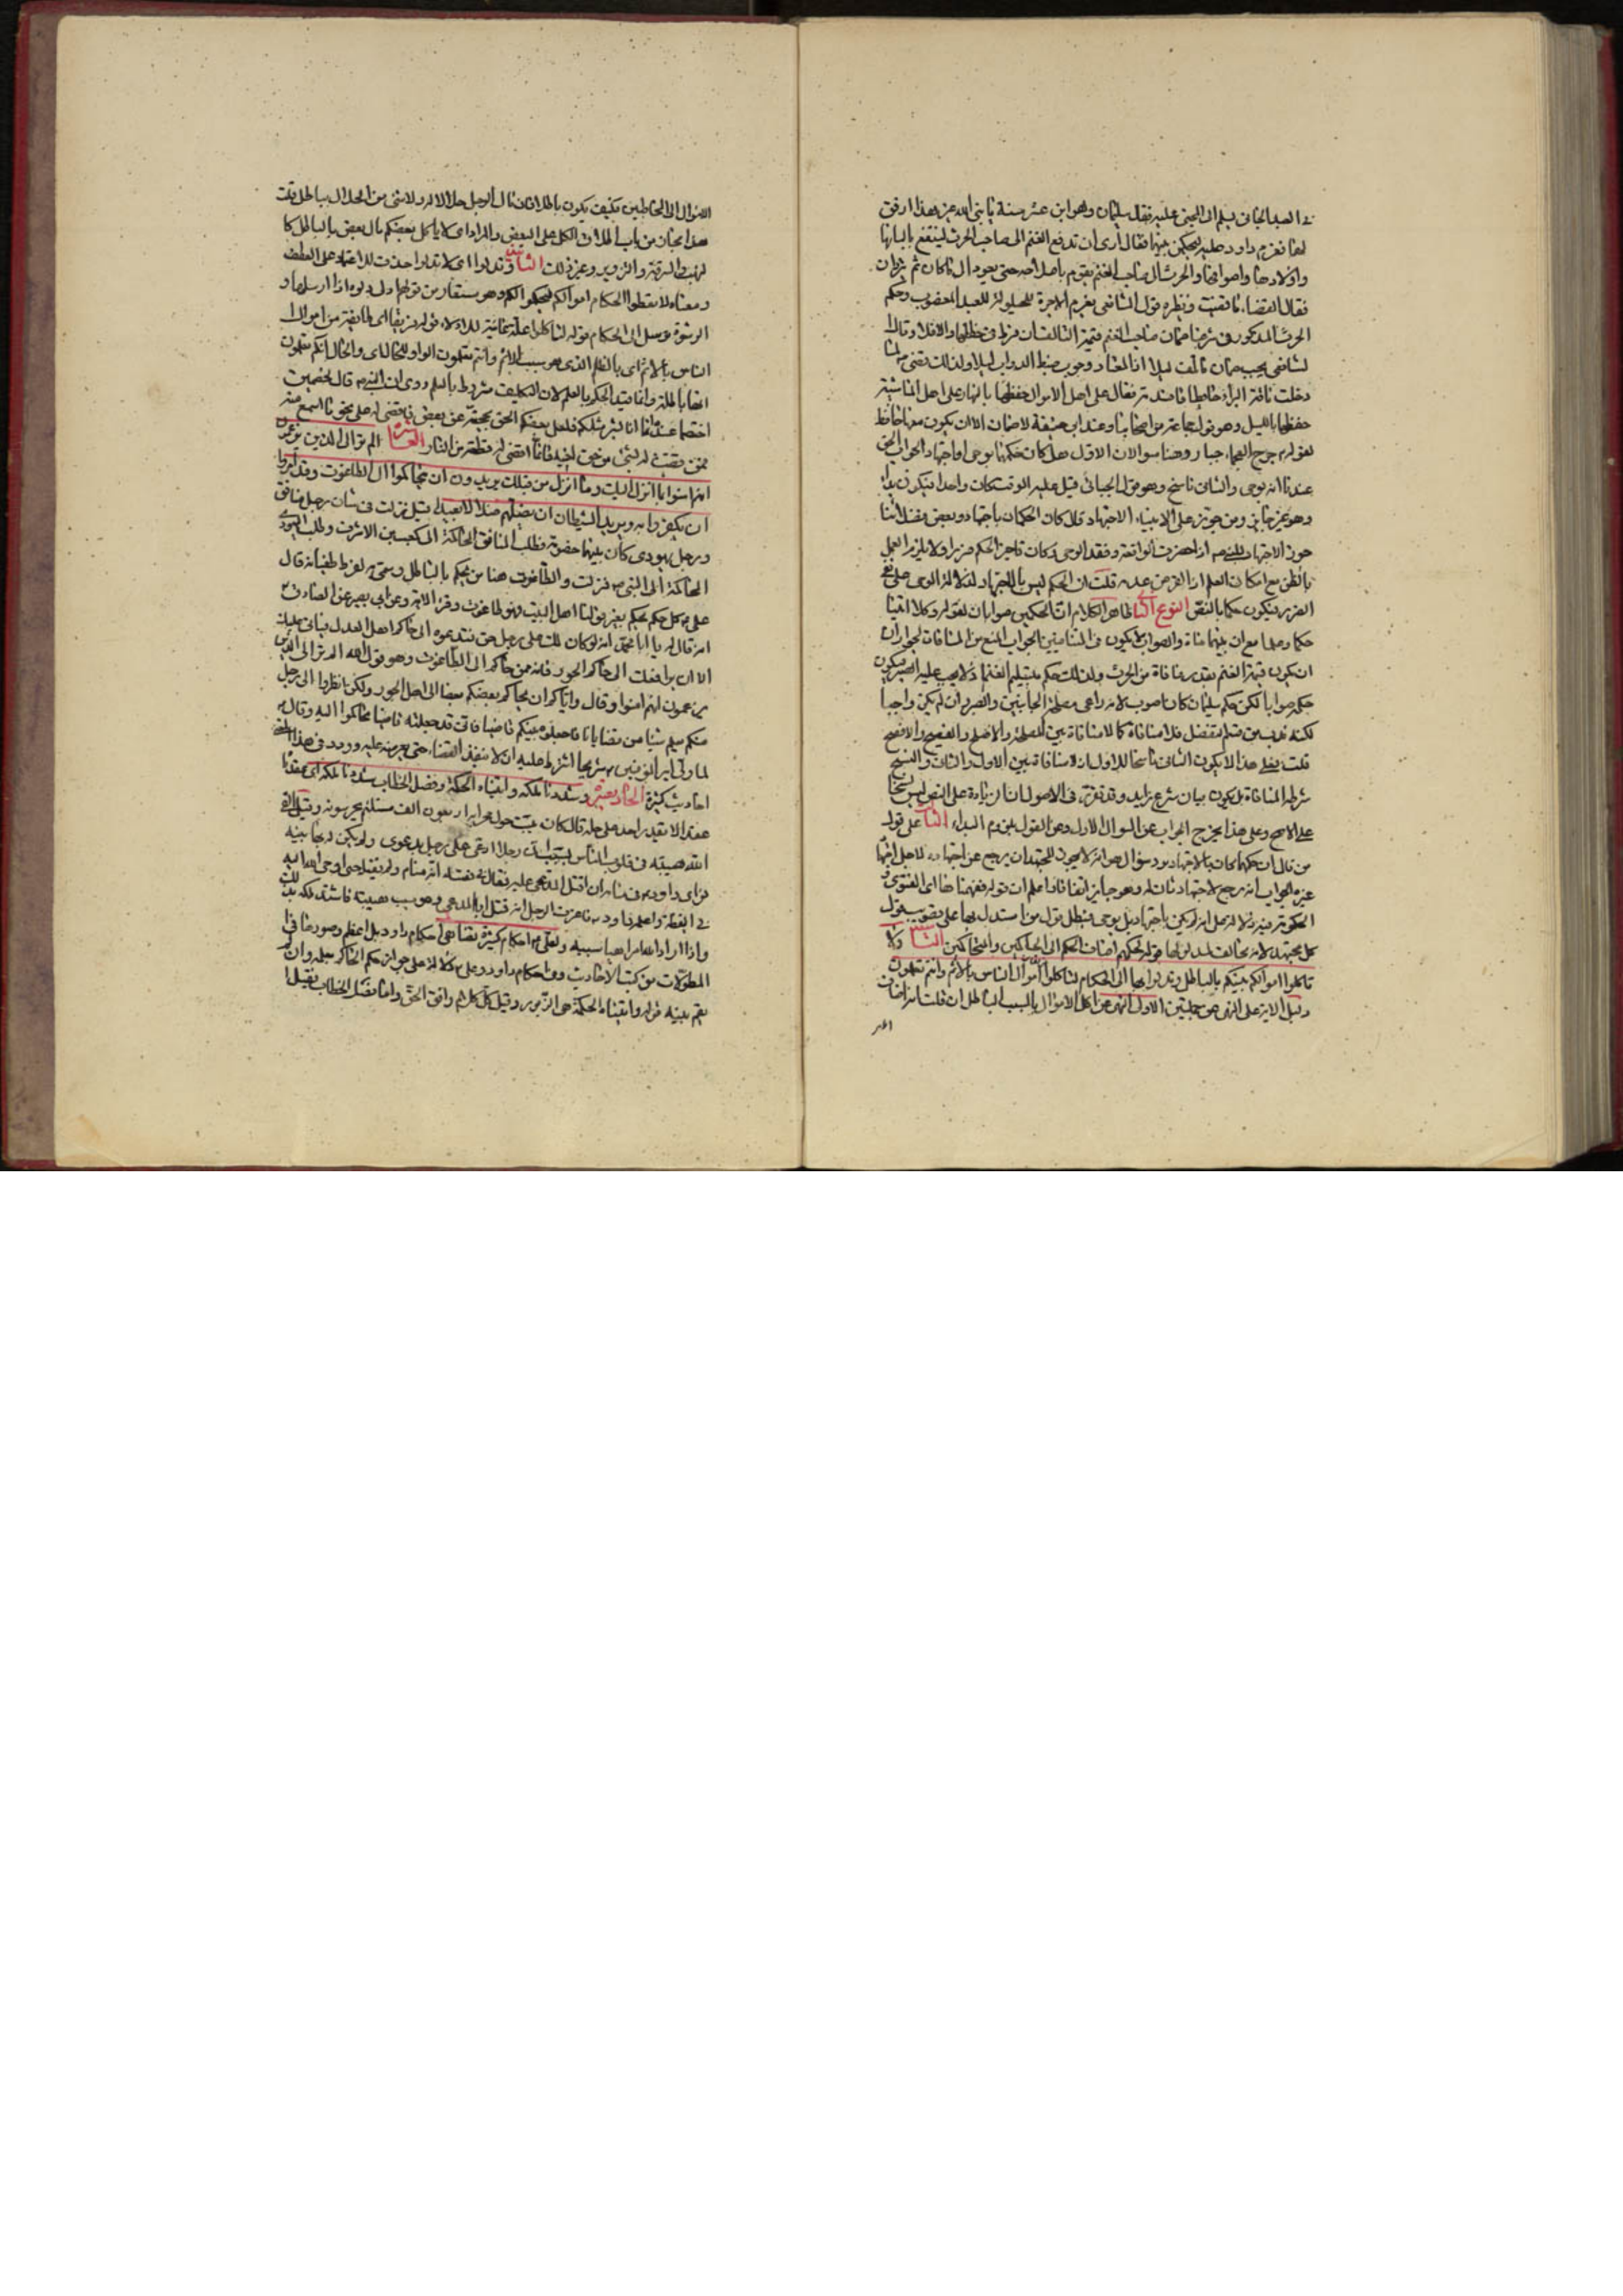 في العبد الجاني يسلم الى المجني عليه فقال سليمان وهو ابن عشر سنة يا نبي الله غير هذا ارفق
لهما فعزم داود عليه ليحكمن بينهما فقال ارى ان تدفع الغنم الى صاحب الحرث لينتفع بالبانها
واولادها واصوافها والحرث الى صاحب الغنم يقوم باصلاحه حتى يعود الى ما كان ثم يترادان
فقال القضاء ما قضيت ونظيره قول الشافعي بغرم الاجرة للحيلولة للعبد المغصوب وحكم
الحرث المذكور في شرعنا ضمان صاحب الغنم قيمة التالف ان فرط في حفظها والا فلا وقال
الشافعي يجب ضمان ما تلف ليلا اذ المعتاد وجوب ضبط الدواب ليلا ولذلك قضى لما
دخلت ناقة البراء حائطا فافسدته فقال على اهل الاموال حفظها بالنهار وعلى اهل الماشية
حفظها بالليل وهو قول جماعة من اصحابنا وعند ابي حنيفة لا ضمان الا ان يكون معها حافظ
لقوله جرح العجماء جبار وهنا سوالان الاول هل كان حكمهما بوحى او اجتهاد الجواب الحق
عندنا انه بوحى والثاني ناسخ وهو قول الجبائي قيل عليه الوقت كان واحدا فيكون بداء
وهو غير جايز ومن جوز على الانبياء الاجتهاد قال كان الحكمان باجتهاد وبعض فضلائنا
جوز الاجتهاد للنبي اذا حضرت الواقعة وفقد الوحى وكان تاخير الحكم ضررا ولا يلزم العمل
بالظن مع امكان العلم اذ الفرض عدمه قلت ان الحكم ليس بالاجتهاد لدلالة الوحى على نفي
الضرر فيكون حكما بالنص النوع الثاني ظاهر الكلام ان الحكمين صوابان لقوله وكلا اتينا
حكما وعلما مع ان بينهما منافاة والصواب لا يكون في المتنافيين الجواب المنع من المنافاة لجواز ان
ان يكون قيمة الغنم بقدر منافاة من الحرث ولذلك حكم بتسليم الغنم اذ لا يجب عليه الصبر فيكون
حكمه صوابا لكن حكم سليمان كان اصوب لانه راعى مصلحة الجانبين والضرر وان لم يكن واجبا
لكنه قد يحسن فبه التفضل فلا منافاة كما لا منافاة بين المصلحة والاصلح والفصيح والافصح
قلت فعلى هذا لا يكون الثاني ناسخا للاول اذ لا منافاة بين الاول والثاني والنسخ
شرطه المنافاة بل يكون بيان شرع زايد وقد تقرر في الاصول ان الزيادة على النص ليس نسخا
على الاصح وعلى هذا يخرج الجواب عن السوال الاول وعن القول بلزوم البداء الثالث على قول
من قال ان حكمهما كان بالاجتهاد يرد سؤال هو انه لا يجوز للمجتهد ان يرجع عن اجتهاده لاجل اجتهاد
غيره الجواب انه رجع لاجتهاد ثان له وهو جايز اتفاقا اذا علم ان قوله ففهمناها اى الفتوى و
الحكومة فيه دلالة على انه لم يكن باجتهاد بل بوحى فبطل قول من استدل بها على تصويب قول
كل مجتهد لانه مخالف لمدلولها قوله لحكمهم اضاف الحكم الى الحاكمين والمتحاكمين التاسع ولا
تاكلوا اموالكم بينكم بالباطل وتدلوا بها الى الحكام لتاكلوا فريقا من اموال الناس بالاثم وانتم تعلمون
دليل الاية على النهي عن جملتين الاول النهي عن اكل الاموال بالسبب الباطل ان قلت انه اضاف
الاموال الى المخاطبين فكيف يكون باطلا فان مال الرجل حلال له ولا شئ من الحلال بباطل قلت
هذا مجاز من باب اطلاق الكل على البعض والمراد اى لا ياكل بعضكم مال بعض بالباطل كا
لغصب والسرقة والتزوير وغير ذلك الثاني وتدلوا اى لا تدلوا حذفت لا اعتمادا على العطف
ومعناه لا تعطوا الحكام اموالكم ليحكموا لكم وهو مستعار من قولهم ادلى دلوه اذا ارسلها و
الرشوة توسل الى الحكام قوله لتاكلوا علة غائية للادلاء قوله فريقا اى طايفة من اموال
الناس بالاثم اى بالظلم الذى هو سبب الاثم وانتم تعلمون الواو للحال اى والحال انكم تعلمون
انها باطلة وانما قيد الحكم بالعلم لان التكليف مشروط بالعلم وروى ان النبي قال لخصمين
اختصما عنده انما انا بشر مثلكم فلعل بعضكم الحن بحجته عن بعض فاقضى له على نحو ما اسمع منه
فمن قضيت له بشئ من حق اخيه فانما اقضى له قطعة من النار العاشرة الم تر الى الذين يزعمون
انهم امنوا بما انزل اليك وما انزل من قبلك يريدون ان يتحاكموا الى الطاغوت وقد امروا
ان يكفروا به ويريد الشيطان ان يضلهم ضلالا بعيدا قيل نزلت في شان رجل منافق
ورجل يهودى كان بينهما خصومة فطلب المنافق المحاكمة الى كعب بن الاشرف وطلب اليهودى
المحاكمة الى النبي فنزلت والطاغوت هنا من يحكم بالباطل وسمى به لفرط طغيانه قال
على كل حكم يحكم بغير قولنا اهل البيت فهو طاغوت وقرء الاية وعن ابي بصير عن الصادق
انه قال له يا ابا محمد انه لو كان لك على رجل حق فتدعوه الى حاكم اهل العدل فيابى عليك
الا ان يرافعك الى حاكم الجور فانه ممن حاكم الى الطاغوت وهو قول الله الم تر الى الذين
يزعمون انهم امنوا وقال واياكم ان يحاكم بعضكم بعضا الى اهل الجور ولكن انظروا الى رجل
منكم يعلم شيئا من قضايانا فاجعلوه بينكم قاضيا فاني قد جعلته قاضيا فتحاكموا اليه وقال
لما ولى امير المؤمنين شريحا اشترط عليه ان لا ينفذ القضاء حتى يعرضه عليه وورد في هذا المعنى
احاديث كثيرة الحادية عشر وشددنا ملكه واتيناه الحكمة وفصل الخطاب شددنا ملكه اى عقدنا
عقدا لا يقدر احد على حله قال كان يبيت حول محرابه اربعون الف مستلئم يحرسونه وقيل القى
الله هيبته في قلوب الناس بسبب ان رجلا ادعى على رجل بدعوى ولم يكن له بها بينة
فراى داود في منامه ان اقتل المدعى عليه فقال انه منام ولم يفعل حتى اوحى الله اليه
في اليقظة واعلمه داود فاعترف الرجل انه قتل ابا المدعى وهو سبب هيبته فاشتد ملكه بذلك
واذا اراد الله امرا هيا سببه ولعلي احكام كثيرة تضاهى احكام داود بل اعظم وصورها في
المطولات من كتب الاحاديث وفي احكام داود وعلي دلالة على جواز حكم الحاكم بعلمه وان لم
تقم بينة قوله واتيناه الحكمة هي الزبور وقيل كل كلام وافق الحق واما فصل الخطاب فقيل ا